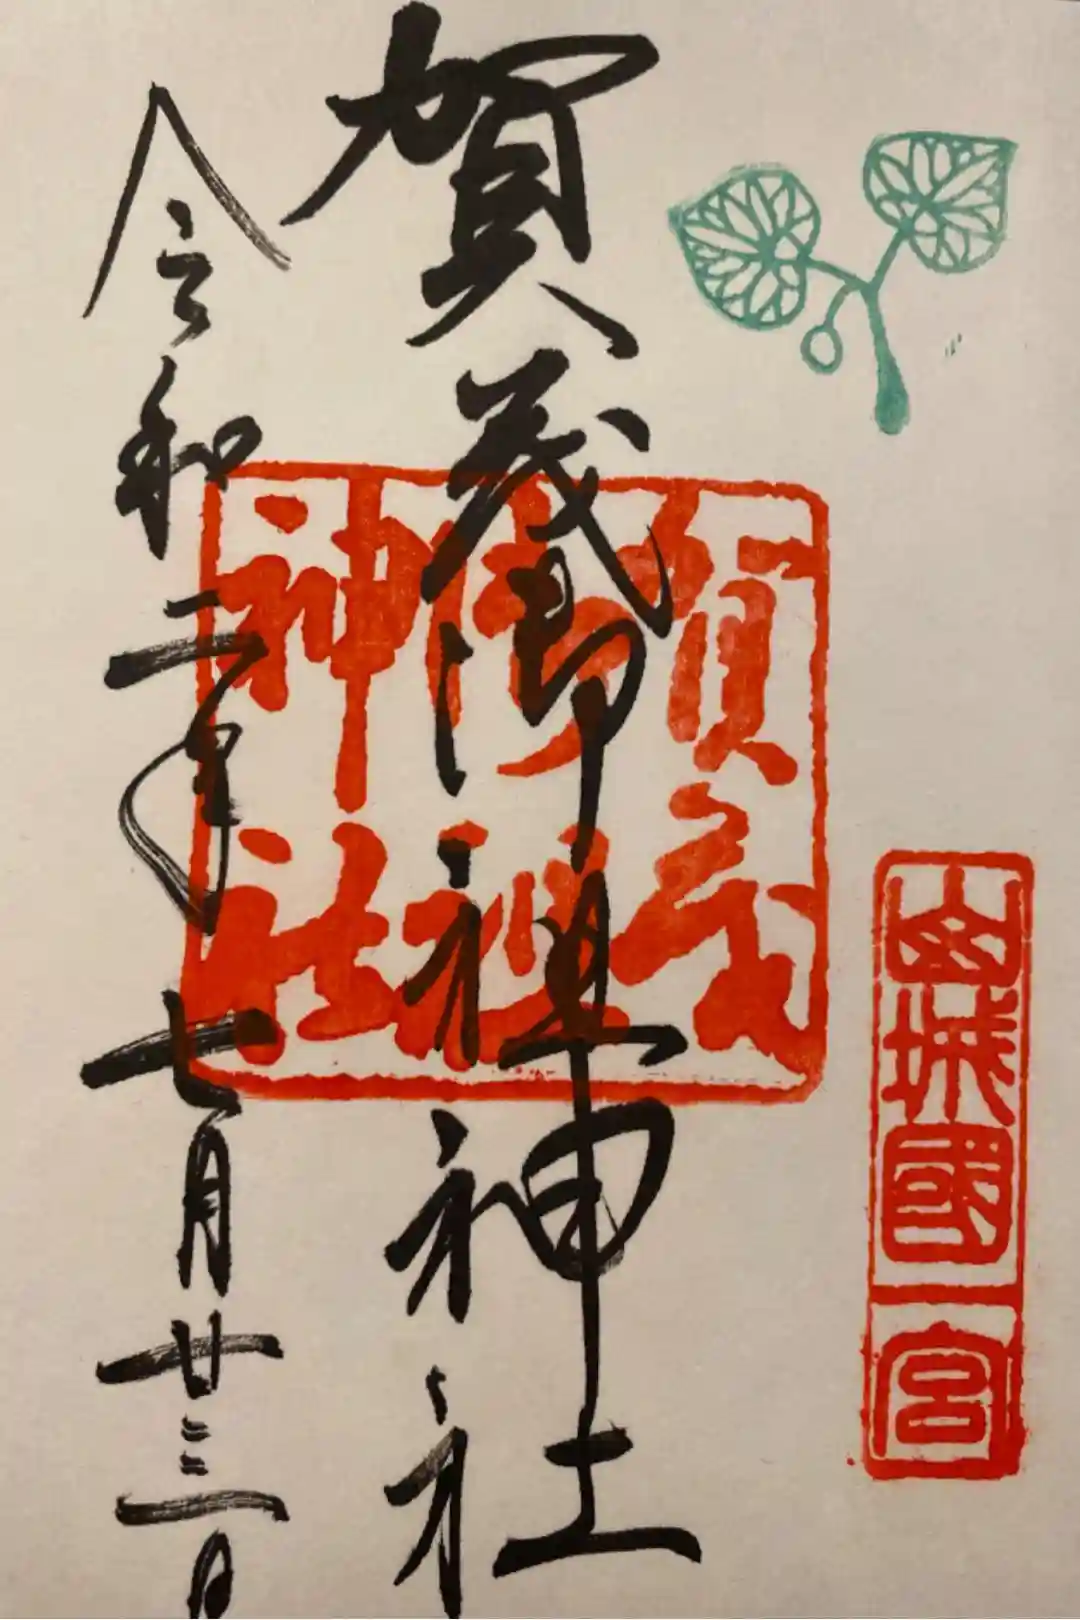 山城國一宮
賀茂御祖神社
賀茂御祖神社
令和二年七月廿三日